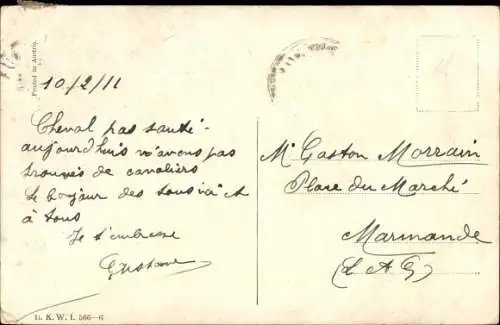 Printed in Austria.
10/2/11
Cheval pas sauté -
aujourd'huis n'avons pas
trouvés de cavaliers
Le bonjour des tous ici et
à tous
Je t'embrasse
Gustave
Mr Gaston Morrain
Place du Marché
Marmande
(L & G)
B. K. W. I. 566-6